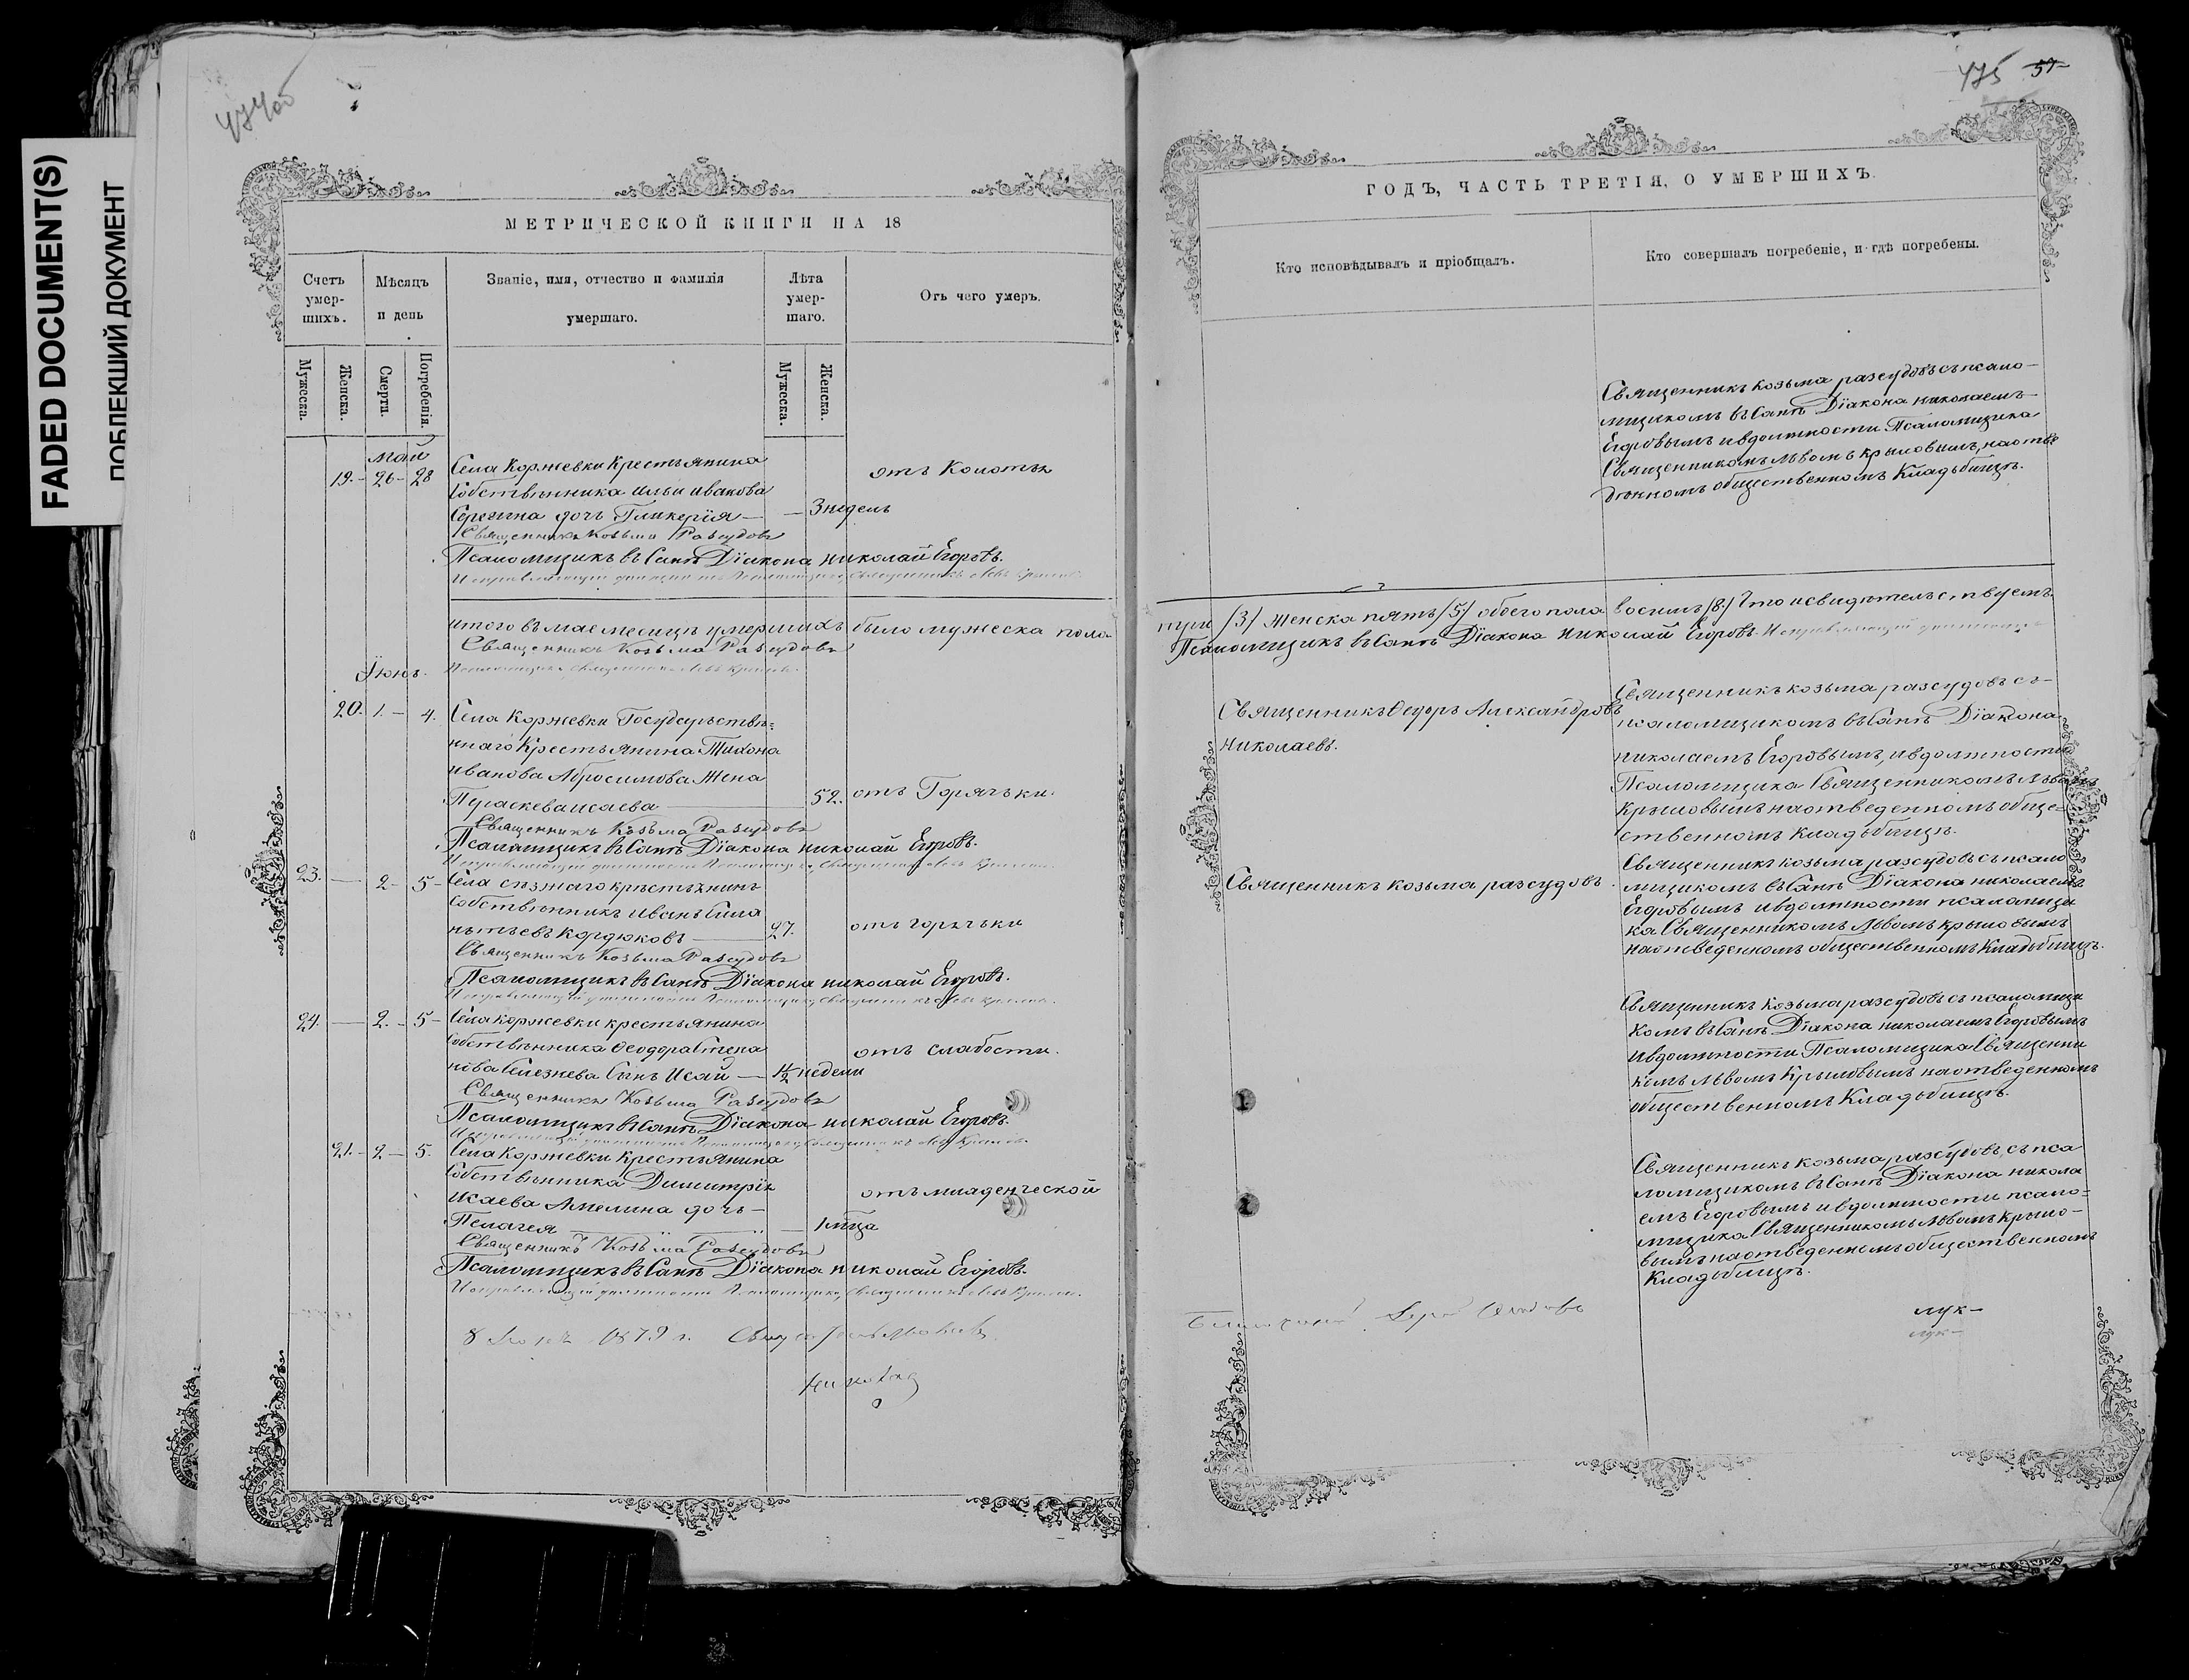 FADED DOCUMENT(S)
ПОБЛЕКШИЙ ДОКУМЕНТ
474об
475 57
МЕТРИЧЕСКОЙ КНИГИ НА 18
Счетъ умер-шихъ.
Мѣсяцъ и день
Званіе, имя, отчество и фамилія умершаго.
Лѣта умер-шаго.
Отъ чего умеръ.
Мужеска.
Женска.
Смерти.
Погребенія.
Мужеска.
Женска.
май
19. - 26 - 28 Села Коржевки Крестьянина
Собственника Ильи Иванова
отъ Колотья
Сергина дочь Гликерія — 3 недель
Священникъ Козьма Разсудовъ
Псаломщикъ въ Санѣ Діакона Николай Егоровъ.
итого въ мае месяцѣ умершихъ было мужеска пола
Священникъ Козьма Разсудовъ
Іюнь.
20. 1. - 4. Села Коржевки Государстве=
ннаго Крестьянина Тихона
Иванова Абросимова Жена
Параскева Исаева — 52. отъ Горячьки.
Священникъ Козьма Разсудовъ
Псаломщикъ въ Санѣ Діакона Николай Егоровъ.
23. — 2 - 5 - Села
Собственникъ Иванъ Сила
нтьевъ Кордюковъ — 27. отъ горячьки
Священникъ Козьма Разсудовъ
Псаломщикъ въ Санѣ Діакона Николай Егоровъ.
24. — 2. - 5 - Села Коржевки крестьянина
Собственника Ѳеодора Степа
отъ слабости.
нова Селезнева Сынъ Исай — 1/2 недели
Священникъ Козьма Разсудовъ
Псаломщикъ въ Санѣ Діакона Николай Егоровъ.
21. - 2 - 5. Села Коржевки Крестьянина
Собственника Димитрія
отъ младенческой
Исаева Амелина дочь —
Пелагея — 1 мѣца
Священникъ Козьма Разсудовъ
Псаломщикъ въ Санѣ Діакона Николай Егоровъ.
8 1879 г.
ГОДЪ, ЧАСТЬ ТРЕТІЯ, О УМЕРШИХЪ.
Кто исповѣдывалъ и пріобщалъ.
Кто совершалъ погребеніе, и гдѣ погребены.
Священникъ козьма разсудовъ съ псало-
мщикомъ въ Санѣ Діакона николаемъ
Егоровымъ и въ должности Псаломщика
Священникомъ Львомъ крыловымъ, на отве
денномъ общественномъ Кладьбищѣ.
три /3/ Женска пять /5/ обоего пола восимь /8./ Что и свидетельствуемъ.
Псаломщикъ въ Санѣ Діакона Николай Егоровъ.
Священникъ Ѳедоръ Александровъ
Николаевъ.
Священникъ козьма разсудовъ съ
псаломщикомъ въ Санѣ Діакона
николаемъ Егоровымъ, и въ должности
Псаломщика Священникомъ Львомъ
Крыловымъ на отведенномъ обще=
ственномъ кладьбищѣ.
Священникъ козьма разсудовъ.
Священникъ козьма разсудовъ съ псало
мщикомъ въ Санѣ Діакона николаемъ
Егоровымъ и въ должности псаломщи
ка Священникомъ Львомъ крыловымъ
на отведенномъ общественномъ Кладьбищѣ.
Священникъ козьма разсудовъ съ псаломщи
комъ въ Санѣ Діакона николаемъ Егоровымъ
и въ должности Псаломщика Священни
комъ Львомъ Крыловымъ на отведенномъ
общественномъ Кладьбищѣ.
Священникъ козьма разсудовъ, съ пса
ломщикомъ въ Санѣ Діакона никола
емъ Егоровымъ и въ должности псало=
мщика Священникомъ Львомъ крыло-
вымъ на отведенномъ общественномъ
Кладьбищѣ.